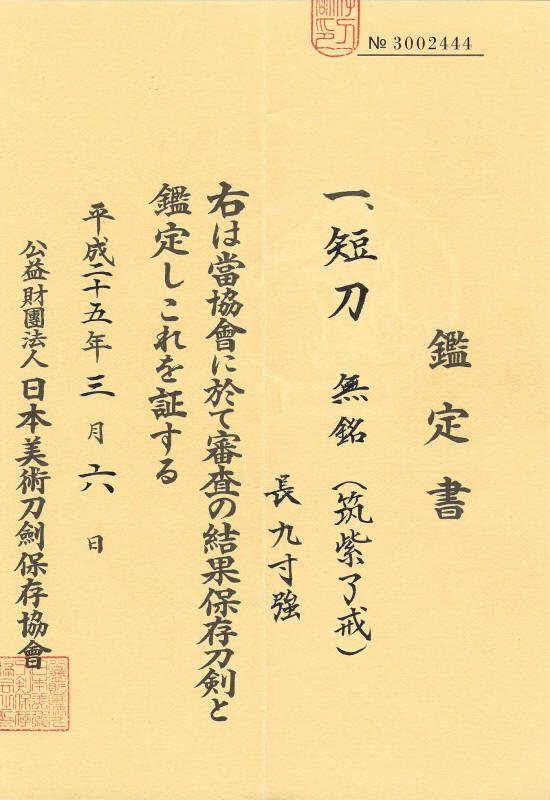 № 3002444
鑑定書
一、短刀 無銘(筑紫了戒)
長九寸強
右は當協會に於て審査の結果保存刀剣と
鑑定しこれを証する
平成二十五年三月六日
公益財團法人日本美術刀劍保存協會